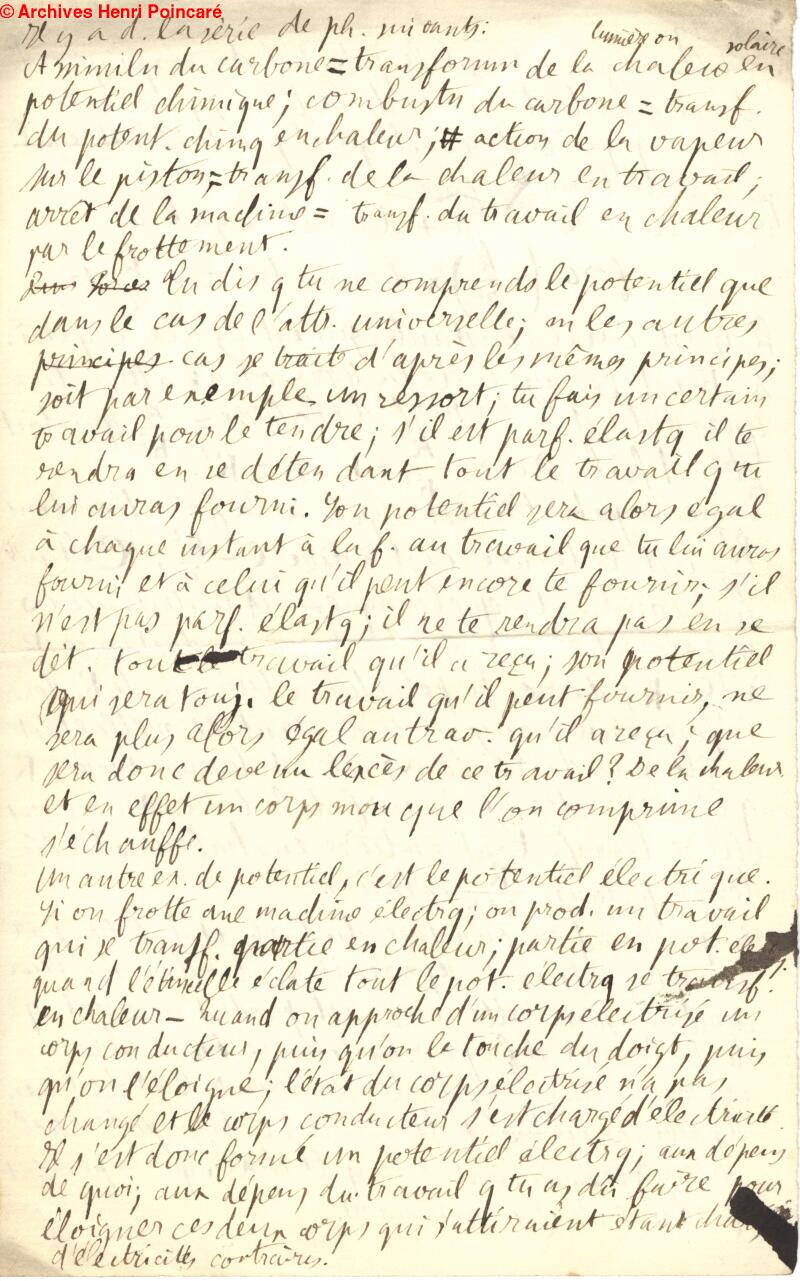 © Archives Henri Poincaré
Il y a d. la série de ph. suivants:
lumière ou solaire
Assimiln du carbone = transformn de la chaleur en
potentiel chimique; combustn du carbone = transf.
du potent. chimq en chaleur; action de la vapeur
sur le piston = transf. de la chaleur en travail;
arrêt de la machine = transf. du travail en chaleur
par le frottement.
Tu dis q tu ne comprends le potentiel que
dans le cas de l'attr. universelle; m les autres
principes cas se traite d'après les mêmes principes;
soit par exemple un ressort; tu fais un certain
travail pour le tendre; s'il est parf. élastq il te
rendra en se détendant tout le travail q tu
lui auras fourni. Son potentiel sera alors égal
à chaque instant à la f. au travail que tu lui auras
fourni et à celui qu'il peut encore te fournir; s'il
n'est pas parf. élastq; il ne te rendra pas en se
dét. tout le travail qu'il a reçu; son potentiel
qui sera touj. le travail qu'il peut fournir, ne
sera plus alors égal au trav. qu'il a reçu; que
sera donc devenu l'excès de ce travail? De la chaleur
et en effet un corps mou que l'on comprime
s'échauffe.
Un autre ex. de potentiel, c'est le potentiel électrique.
Si on frotte une machine électrq; on prod. un travail
qui se transf. partie en chaleur; partie en pot. élec
quand l'étincelle éclate tout le pot. électrq se transf.
en chaleur – Quand on approche d'un corps électrisé un
corps conducteur, puis qu'on le touche du doigt, puis
qu'on l'éloigne; l'état du corps électrisé n'a pas
changé et le corps conducteur s'est chargé d'électricité.
Il s'est donc formé un potentiel électrq; aux dépens
de quoi; aux dépens du travail q tu as dû faire pour
éloigner ces deux corps qui s'attiraient étant chargés
d'électricités contraires.